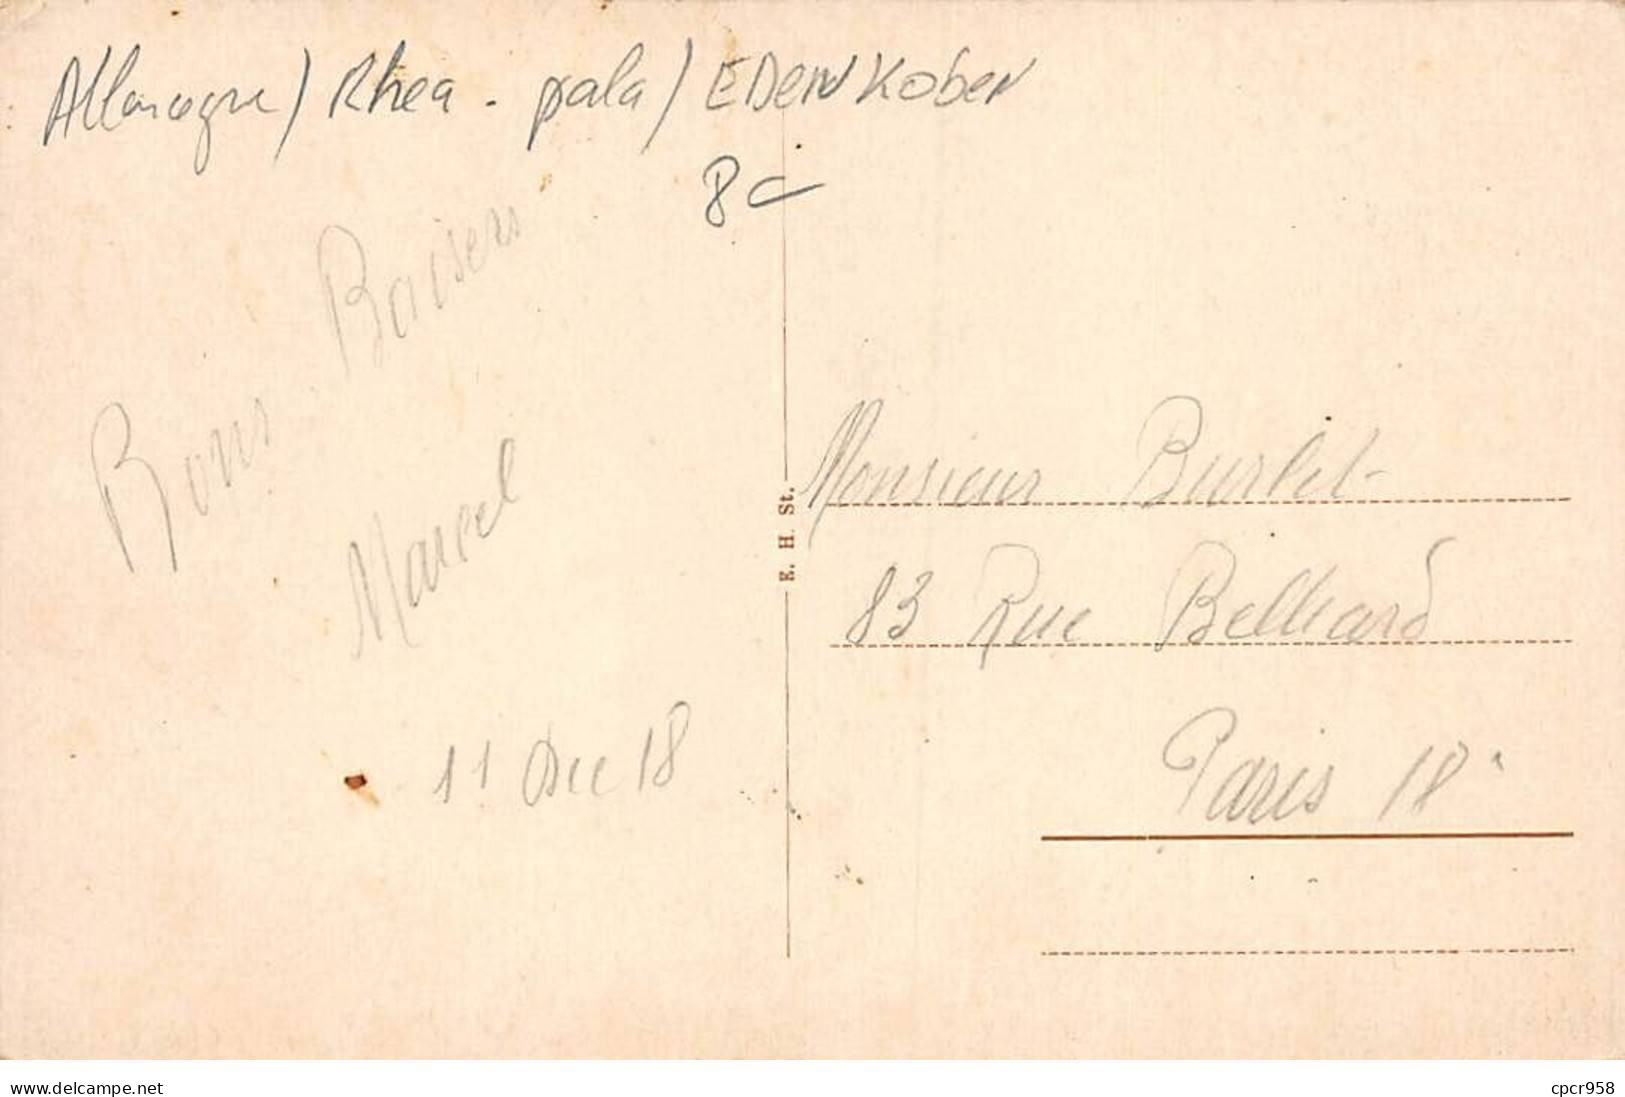 Allemagne / Rhea - pala / EDENKOBEN
8€
Bons Baisers
Marcel
11 Dec 18
E. H. St.
Monsieur Burlet
83 Rue Belliard
Paris 18e
www.delcampe.net
cpcr958